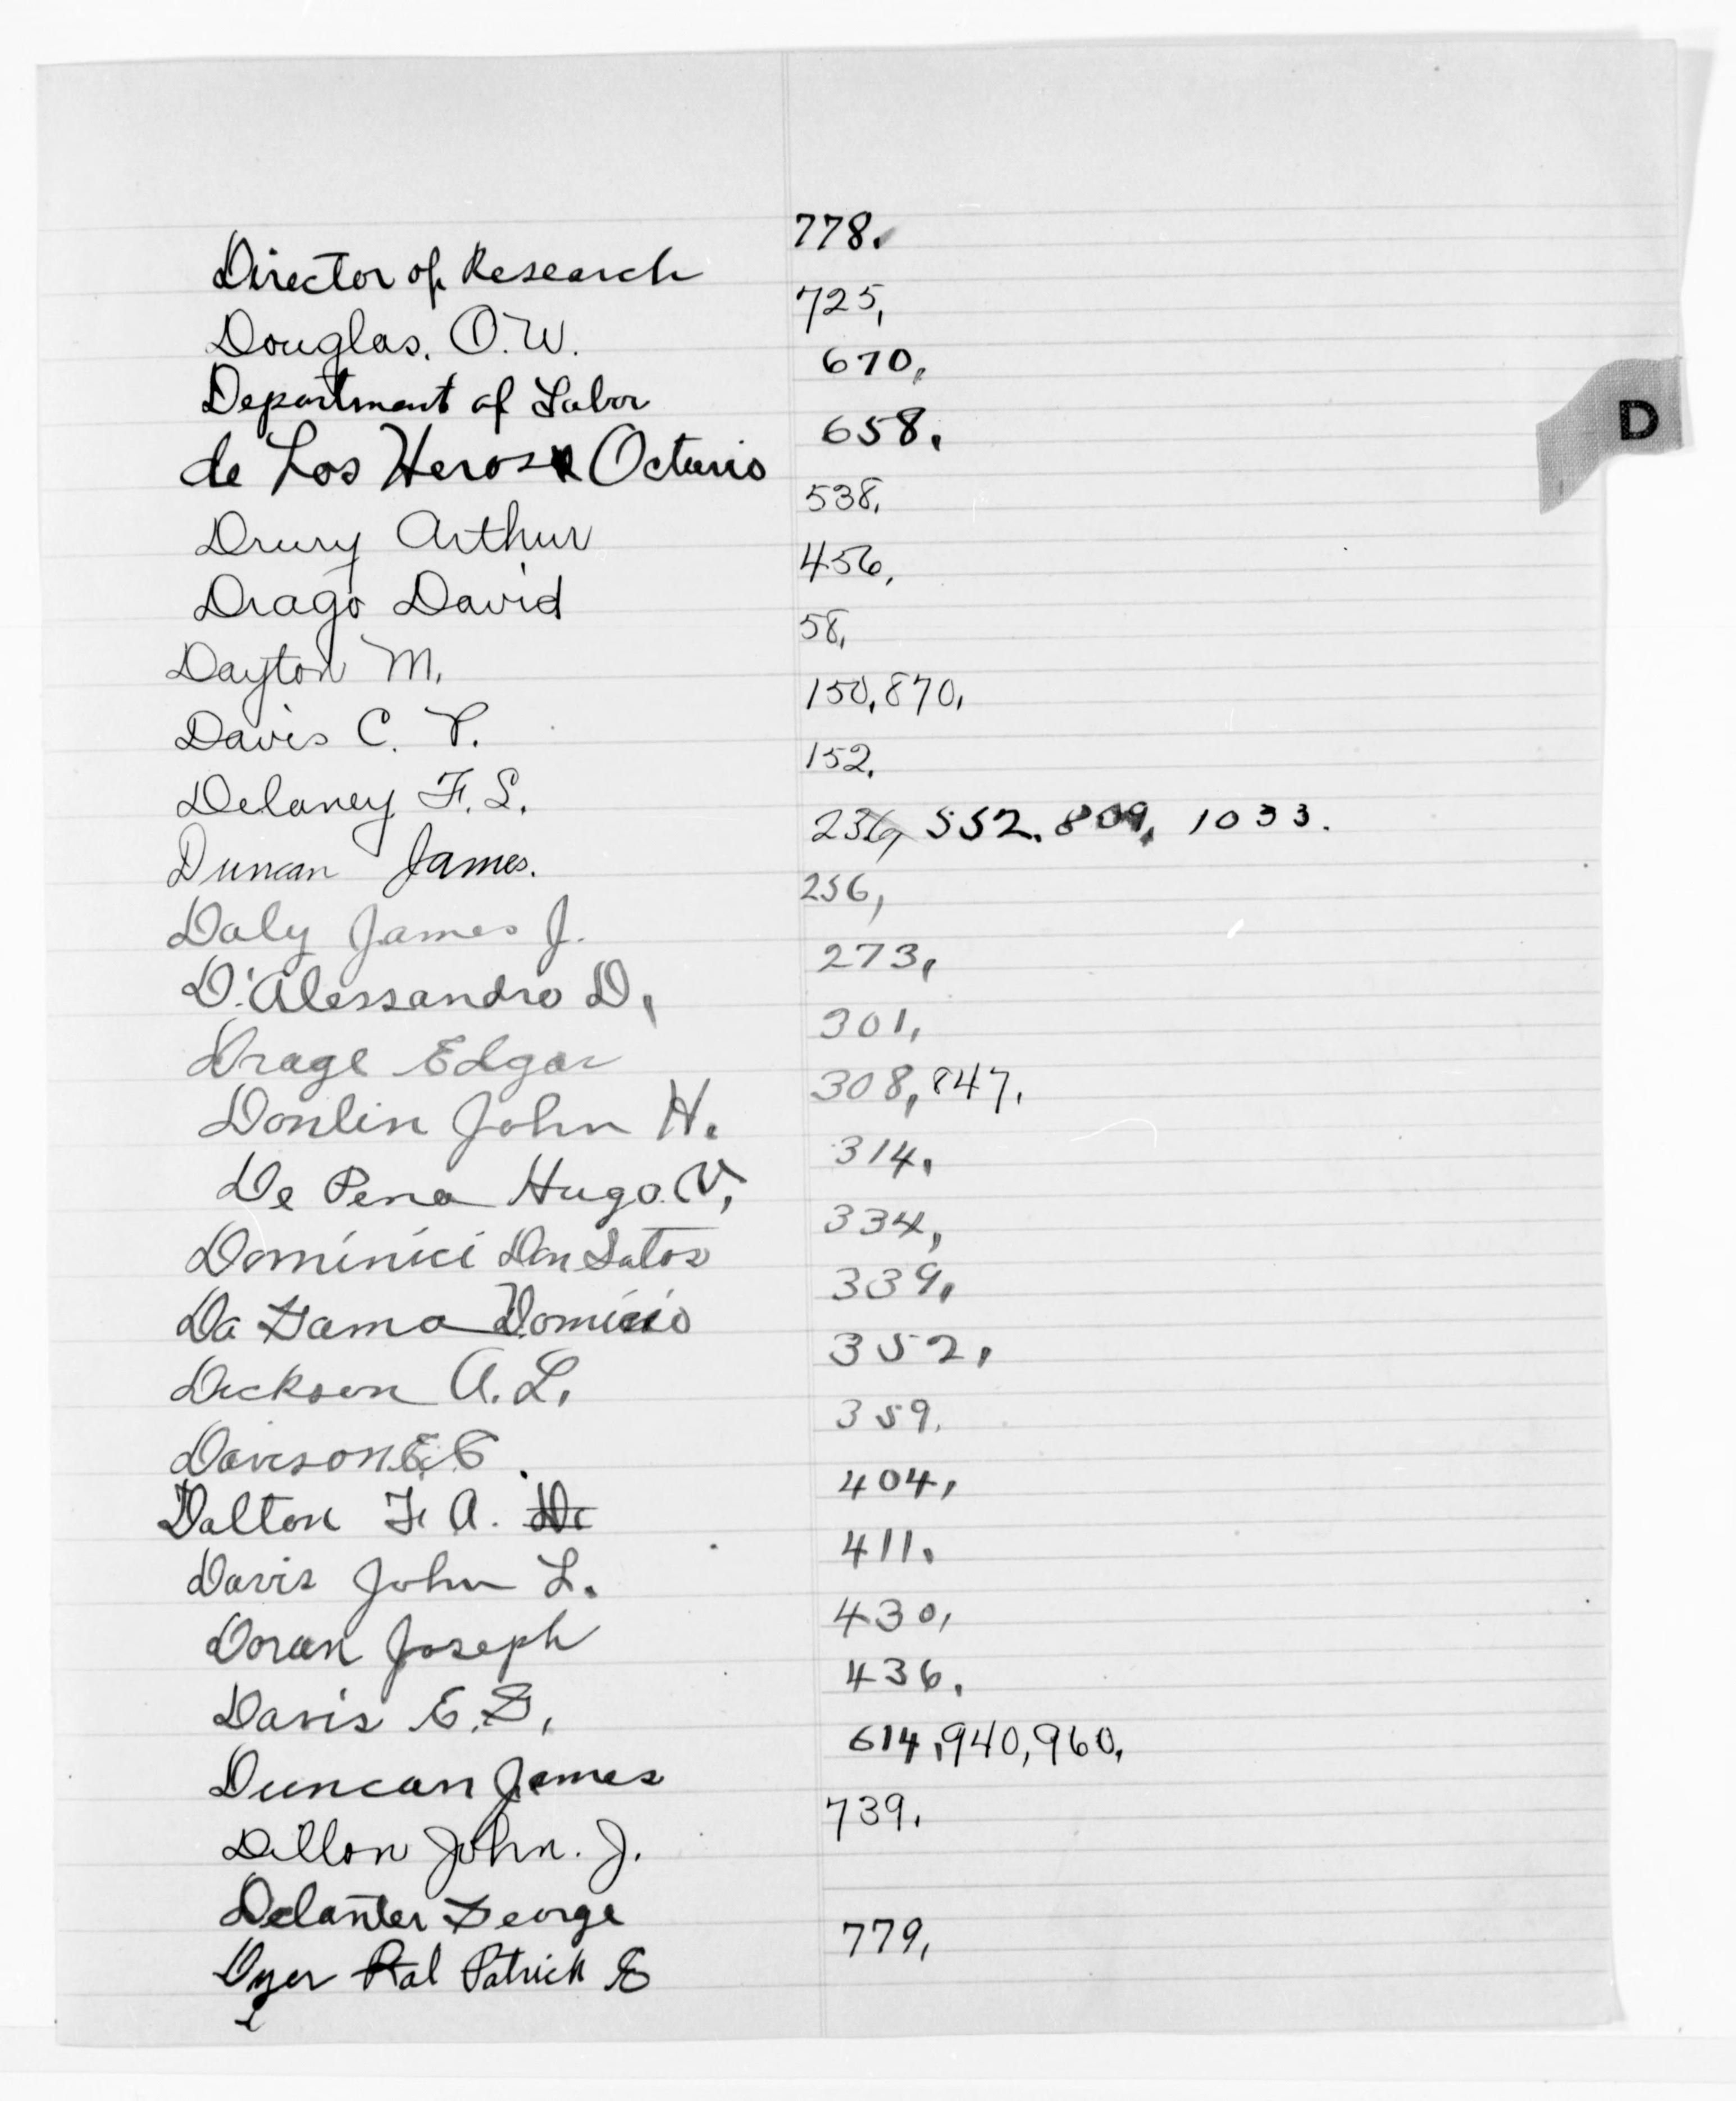 Director of Research 778.
Douglas. O.W. 725,
Department of Labor 670,
de Los Heros Octavio 658.
Drury Arthur 538.
Drago David 456.
Dayton M. 58.
Davis C. P. 150, 870.
Delaney F. S. 152.
Duncan James. 236, 552. 809, 1033.
Daly James J. 256,
D'Alessandro D. 273,
Drage Edgar 301,
Donlin John H. 308, 847.
De Pena Hugo. V, 314.
Dominici Don Satos 334,
Da Gama Domicio 339,
Dickson A. L. 352,
Davison E. 359.
Dalton F. A. De 404,
Davis John L. 411.
Doran Joseph 430,
Davis E. G. 436.
Duncan James 614, 940, 960.
Dillon John. J. 739.
Delanter George
Dyer Ral Patrick E 779,
D